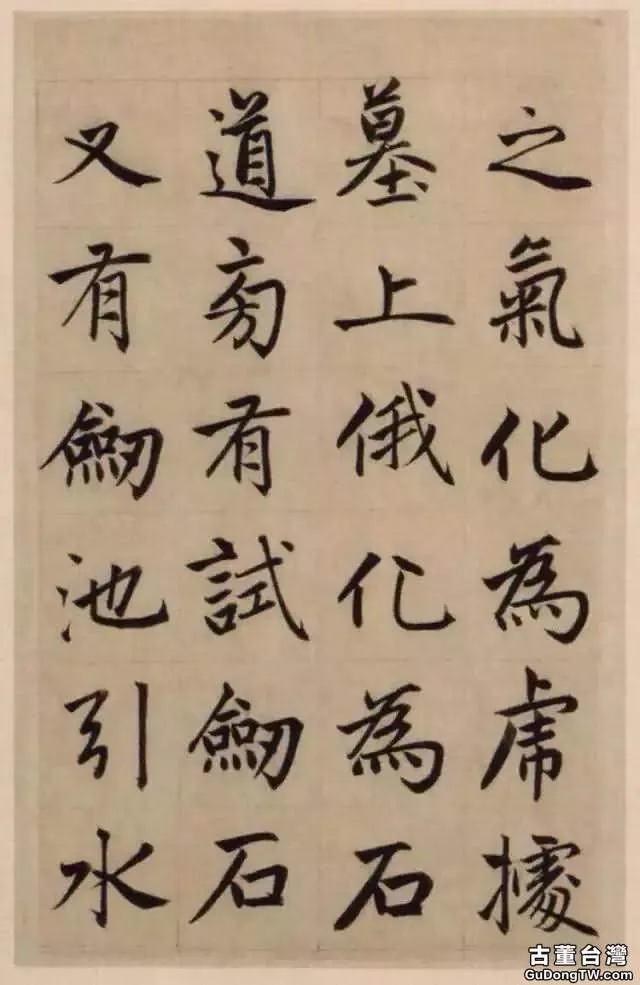 之氣化為虎據
墓上俄化為石
道旁有試劒石
又有劒池引水
古董台灣
GuDongTW.com